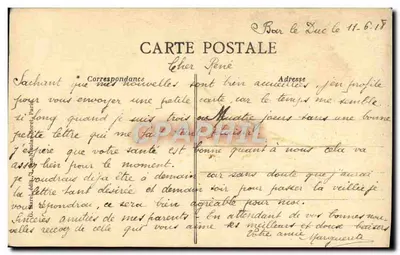 Bar le Duc le 11-6-18
CARTE POSTALE
Cher René
Correspondance
Adresse
Sachant que mes nouvelles sont bien accueillies, j'en profite
pour vous envoyer une petite carte, car le temps me semble
si long quand je suis trois ou quatre jours sans une bonne
petite lettre qui me fa
j'espère que votre santé est bonne quant à nous cela va
assez bien pour le moment.
je voudrais déjà être à demain car sans doute que j'aurai
la lettre tant désirée et demain soir pour passer la veillée je
vous répondrai, ce sera bien agréable pour moi.
Sincères amitiés de mes parents. En attendant de vos bonnes nou-
velles recevez de celle qui vous aime ses meilleurs et doux baisers
Votre amie Marguerite